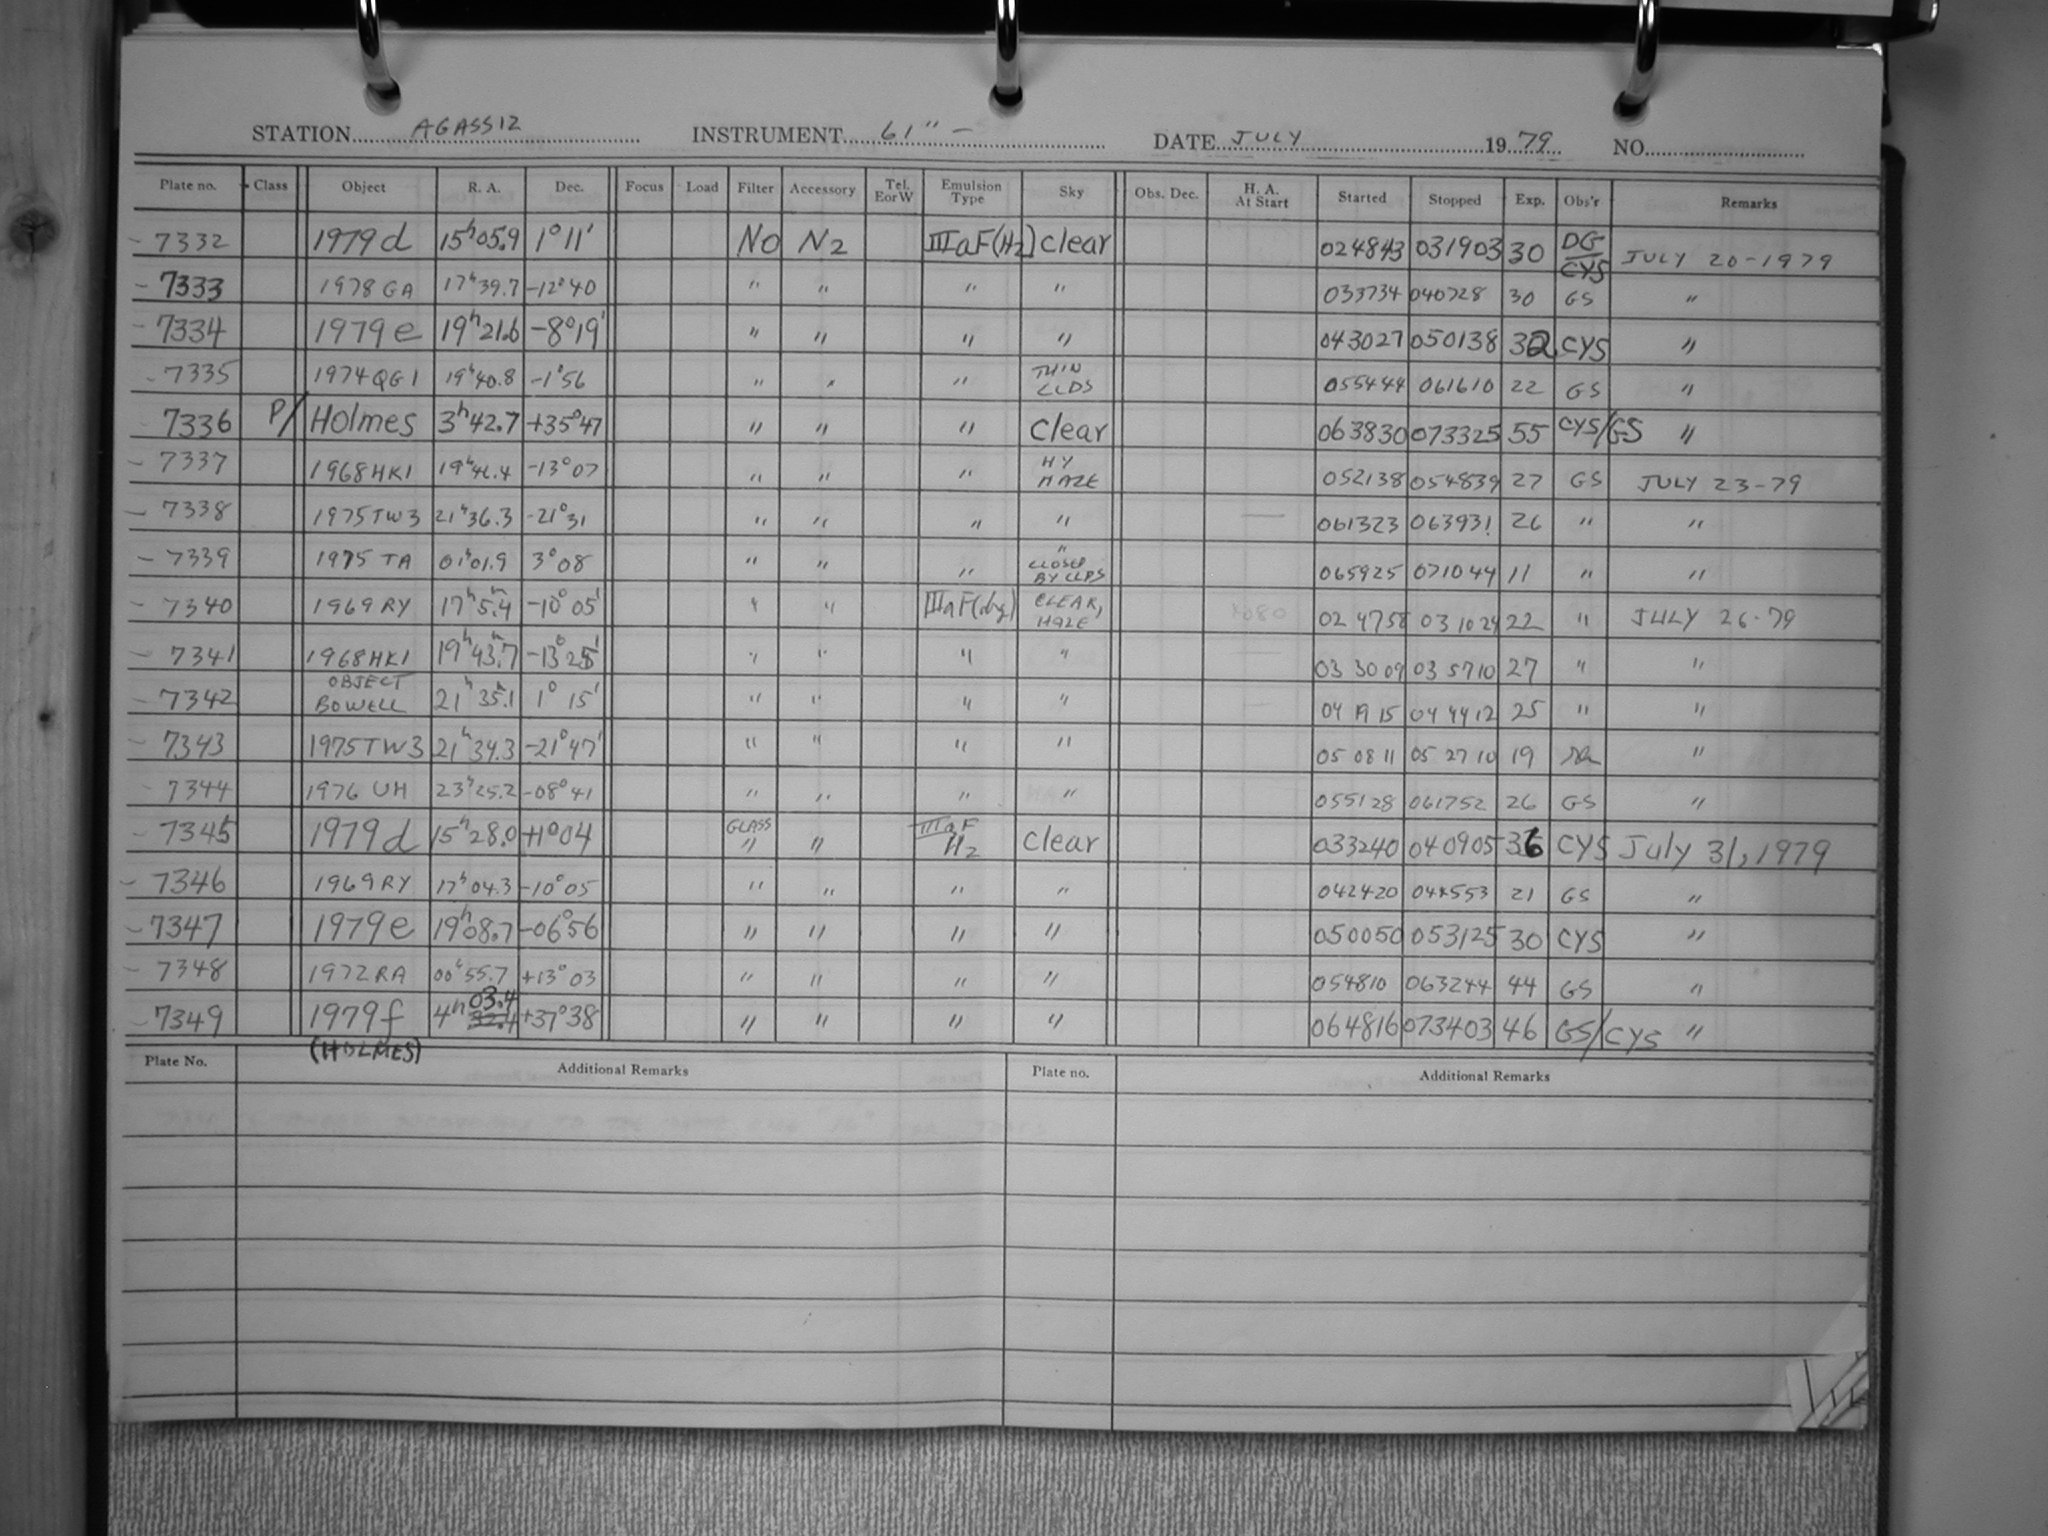 STATION AGASSIZ INSTRUMENT 61" - DATE JULY 1979 NO.
Plate no. Class Object R. A. Dec. Focus Load Filter Accessory Tel. E or W Emulsion Type Sky Obs. Dec. H. A. At Start Started Stopped Exp. Obs'r Remarks
7332 1979d 15h05.9 1°11' NO N2 IIIaF(H2) clear 024843 031903 30 DG/CYS JULY 20-1979
7333 1978 GA 17h39.7 -12°40 " " " " 033734 040728 30 GS "
7334 1979e 19h21.6 -8°19' " " " " 043027 050138 32 CYS "
7335 1974QG1 19h40.8 -1°56 " " " THIN CLDS 055444 061610 22 GS "
7336 P/ Holmes 3h42.7 +35°47 " " " Clear 063830 073325 55 CYS/GS "
7337 1968HK1 19h46.4 -13°07 " " " HY HAZE 052138 054839 27 GS JULY 23-79
7338 1975TW3 21h36.3 -21°31 " " " " 061323 063931 26 " "
7339 1975 TA 01h01.9 3°08 " " " " CLOSED BY CLDS 065925 071044 11 " "
7340 1969 RY 17h5.4m -10°05' " " IIIaF(dry) CLEAR, HAZE 024758 031024 22 " JULY 26-79
7341 1968HK1 19h43.7m -13°25' " " " " 03 30 09 03 57 10 27 " "
7342 OBJECT BOWELL 21h35.1m 1°15' " " " " 04 19 15 04 44 12 25 " "
7343 1975TW3 21h34.3 -21°47' " " " " 05 08 11 05 27 10 19 "
7344 1976 UH 23h25.2 -08°41 " " " " 055128 061752 26 GS "
7345 1979d 15h28.0 +1°04 GLASS " " IIIaF H2 Clear 033240 040905 36 CYS July 31, 1979
7346 1969RY 17h04.3 -10°05 " " " " 042420 044553 21 GS "
7347 1979e 19h08.7 -06°56 " " " " 050050 053125 30 CYS "
7348 1972RA 00h55.7 +13°03 " " " " 054810 063244 44 GS "
7349 1979f 4h 03.4 32.4 +37°38 " " " " 064816 073403 46 GS/CYS "
(HOLMES)
Plate No. Additional Remarks Plate no. Additional Remarks